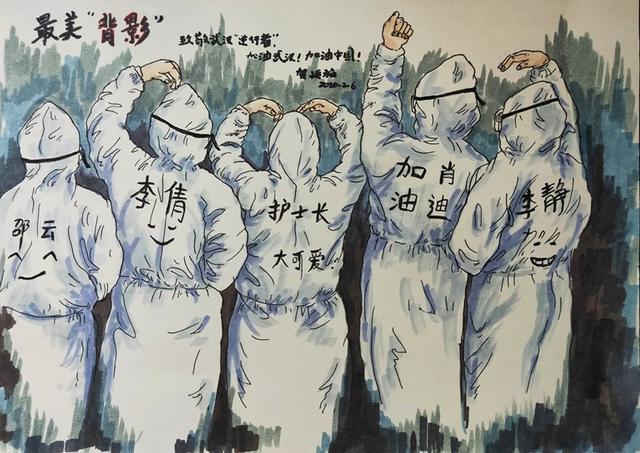 最美“背影”
致敬武汉“逆行者”.
加油武汉！加油中国！
2020.2.6
邵云
李倩
护士长
大可爱
加油
肖迪
李静